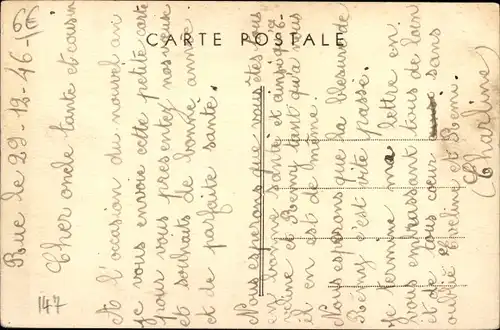 CARTE POSTALE
Rue le 29-12-46
Cher oncle tante et cousin
A l'occasion du nouvel an
je vous envoie cette petite carte
pour vous presenter nos vœux
et souhaits de bonne année
et de parfaite santé.
Nous esperons que vous êtes tous
en bonne santé et ainsi qu'E-
veline et Remy tant qu'à nous
il en est de même.
Nous esperons que la blesure de
Remy c'est vite passé.
Je termine ma lettre en
vous embrassant tous de loin
et de tous cœur sans
oublié Eveline et Remi.
(Charline)
147